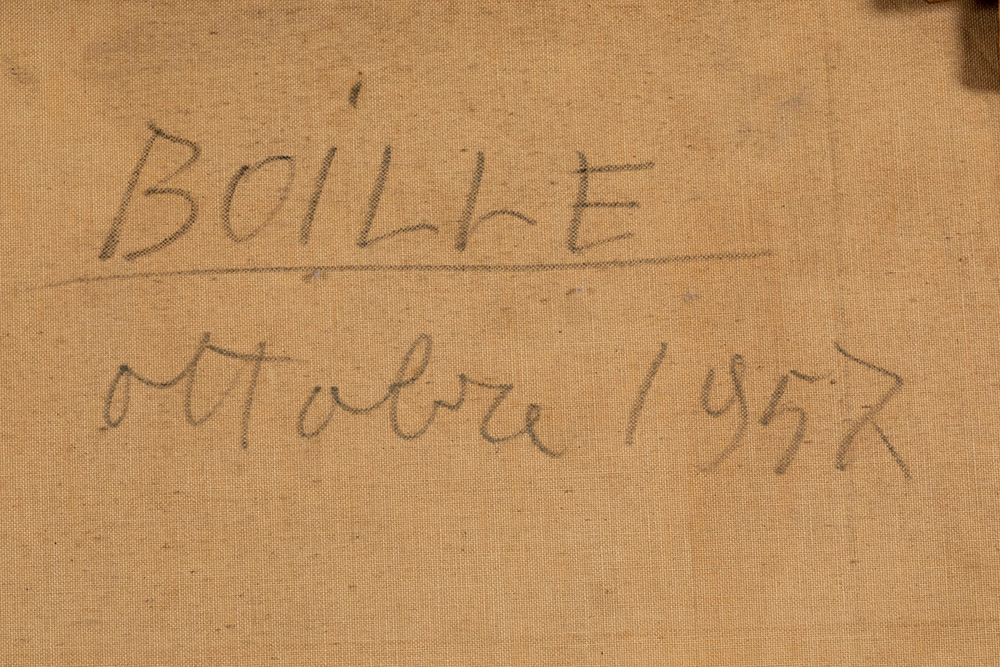 BOILLE
ottobre 1957